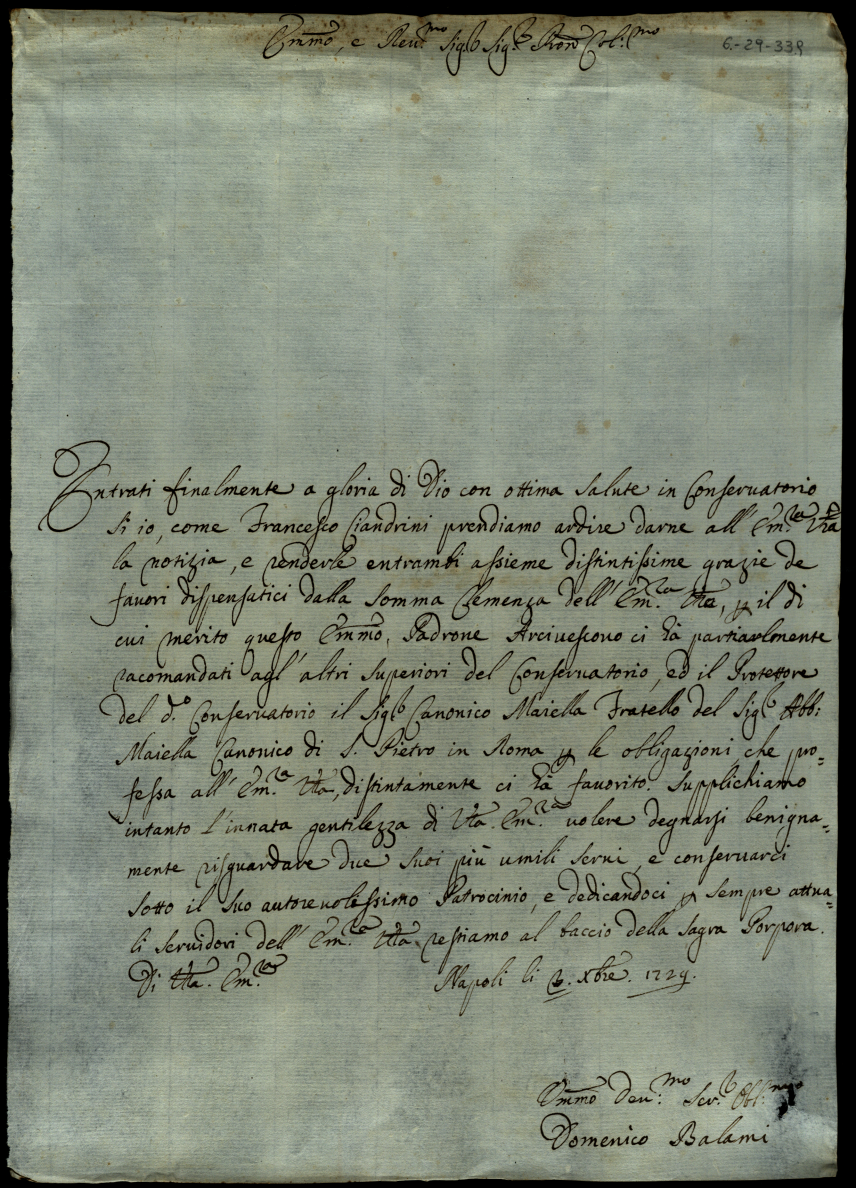 Emmo, e Reu.mo Sig.r Sig.r Pron Col:mo
6-29-339
Entrati finalmente a gloria di Dio con ottima salute in Conseruatorio
si io, come Francesco Ciandrini prendiamo ardire darne all' Em.za Vra
la notizia, e renderle entrambi assieme distintissime grazie de
fauori dispensatici dalla somma Clemenza dell' Em.za Vra, p il di
cui merito questo Emmo, Padrone Arciuescouo ci hà partiarlmente
racomandati agl' altri superiori del Conseruatorio, ed il Protettore
del d.o Conseruatorio il Sig.r Canonico Maiella Fratello del Sig.r Abb:
Maiella Canonico di S. Pietro in Roma p le obligazioni, che pro=
fessa all' Em.za Vra, distintamente ci hà fauorito. Supplichiamo
intanto l'innata gentilezza di Vra. Em.za uolere degnarsi benigna=
mente risguardare due suoi più umili serui, e conseruarci
sotto il suo autoreuolissimo Patrocinio, e dedicandoci p sempre attua=
li seruidori dell' Em.za Vra restiamo al baccio della Sagra Porpora.
Di Vra. Em.za Napoli li Xbre. 1729.
Ummo Deu:mo Ser.r Obl:mo
Domenico Balami